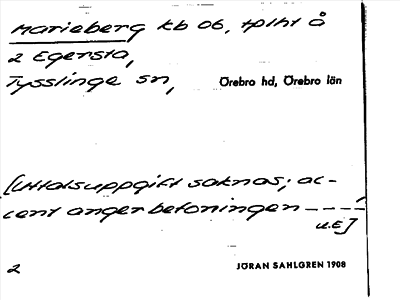 Marieberg kb 06, tplht å
2 Egersta,
Tysslinge sn, Örebro hd, Örebro län
[Uttalsuppgift saknas; ac-
cent anger betoningen
u.E]
2 JÖRAN SAHLGREN 1908